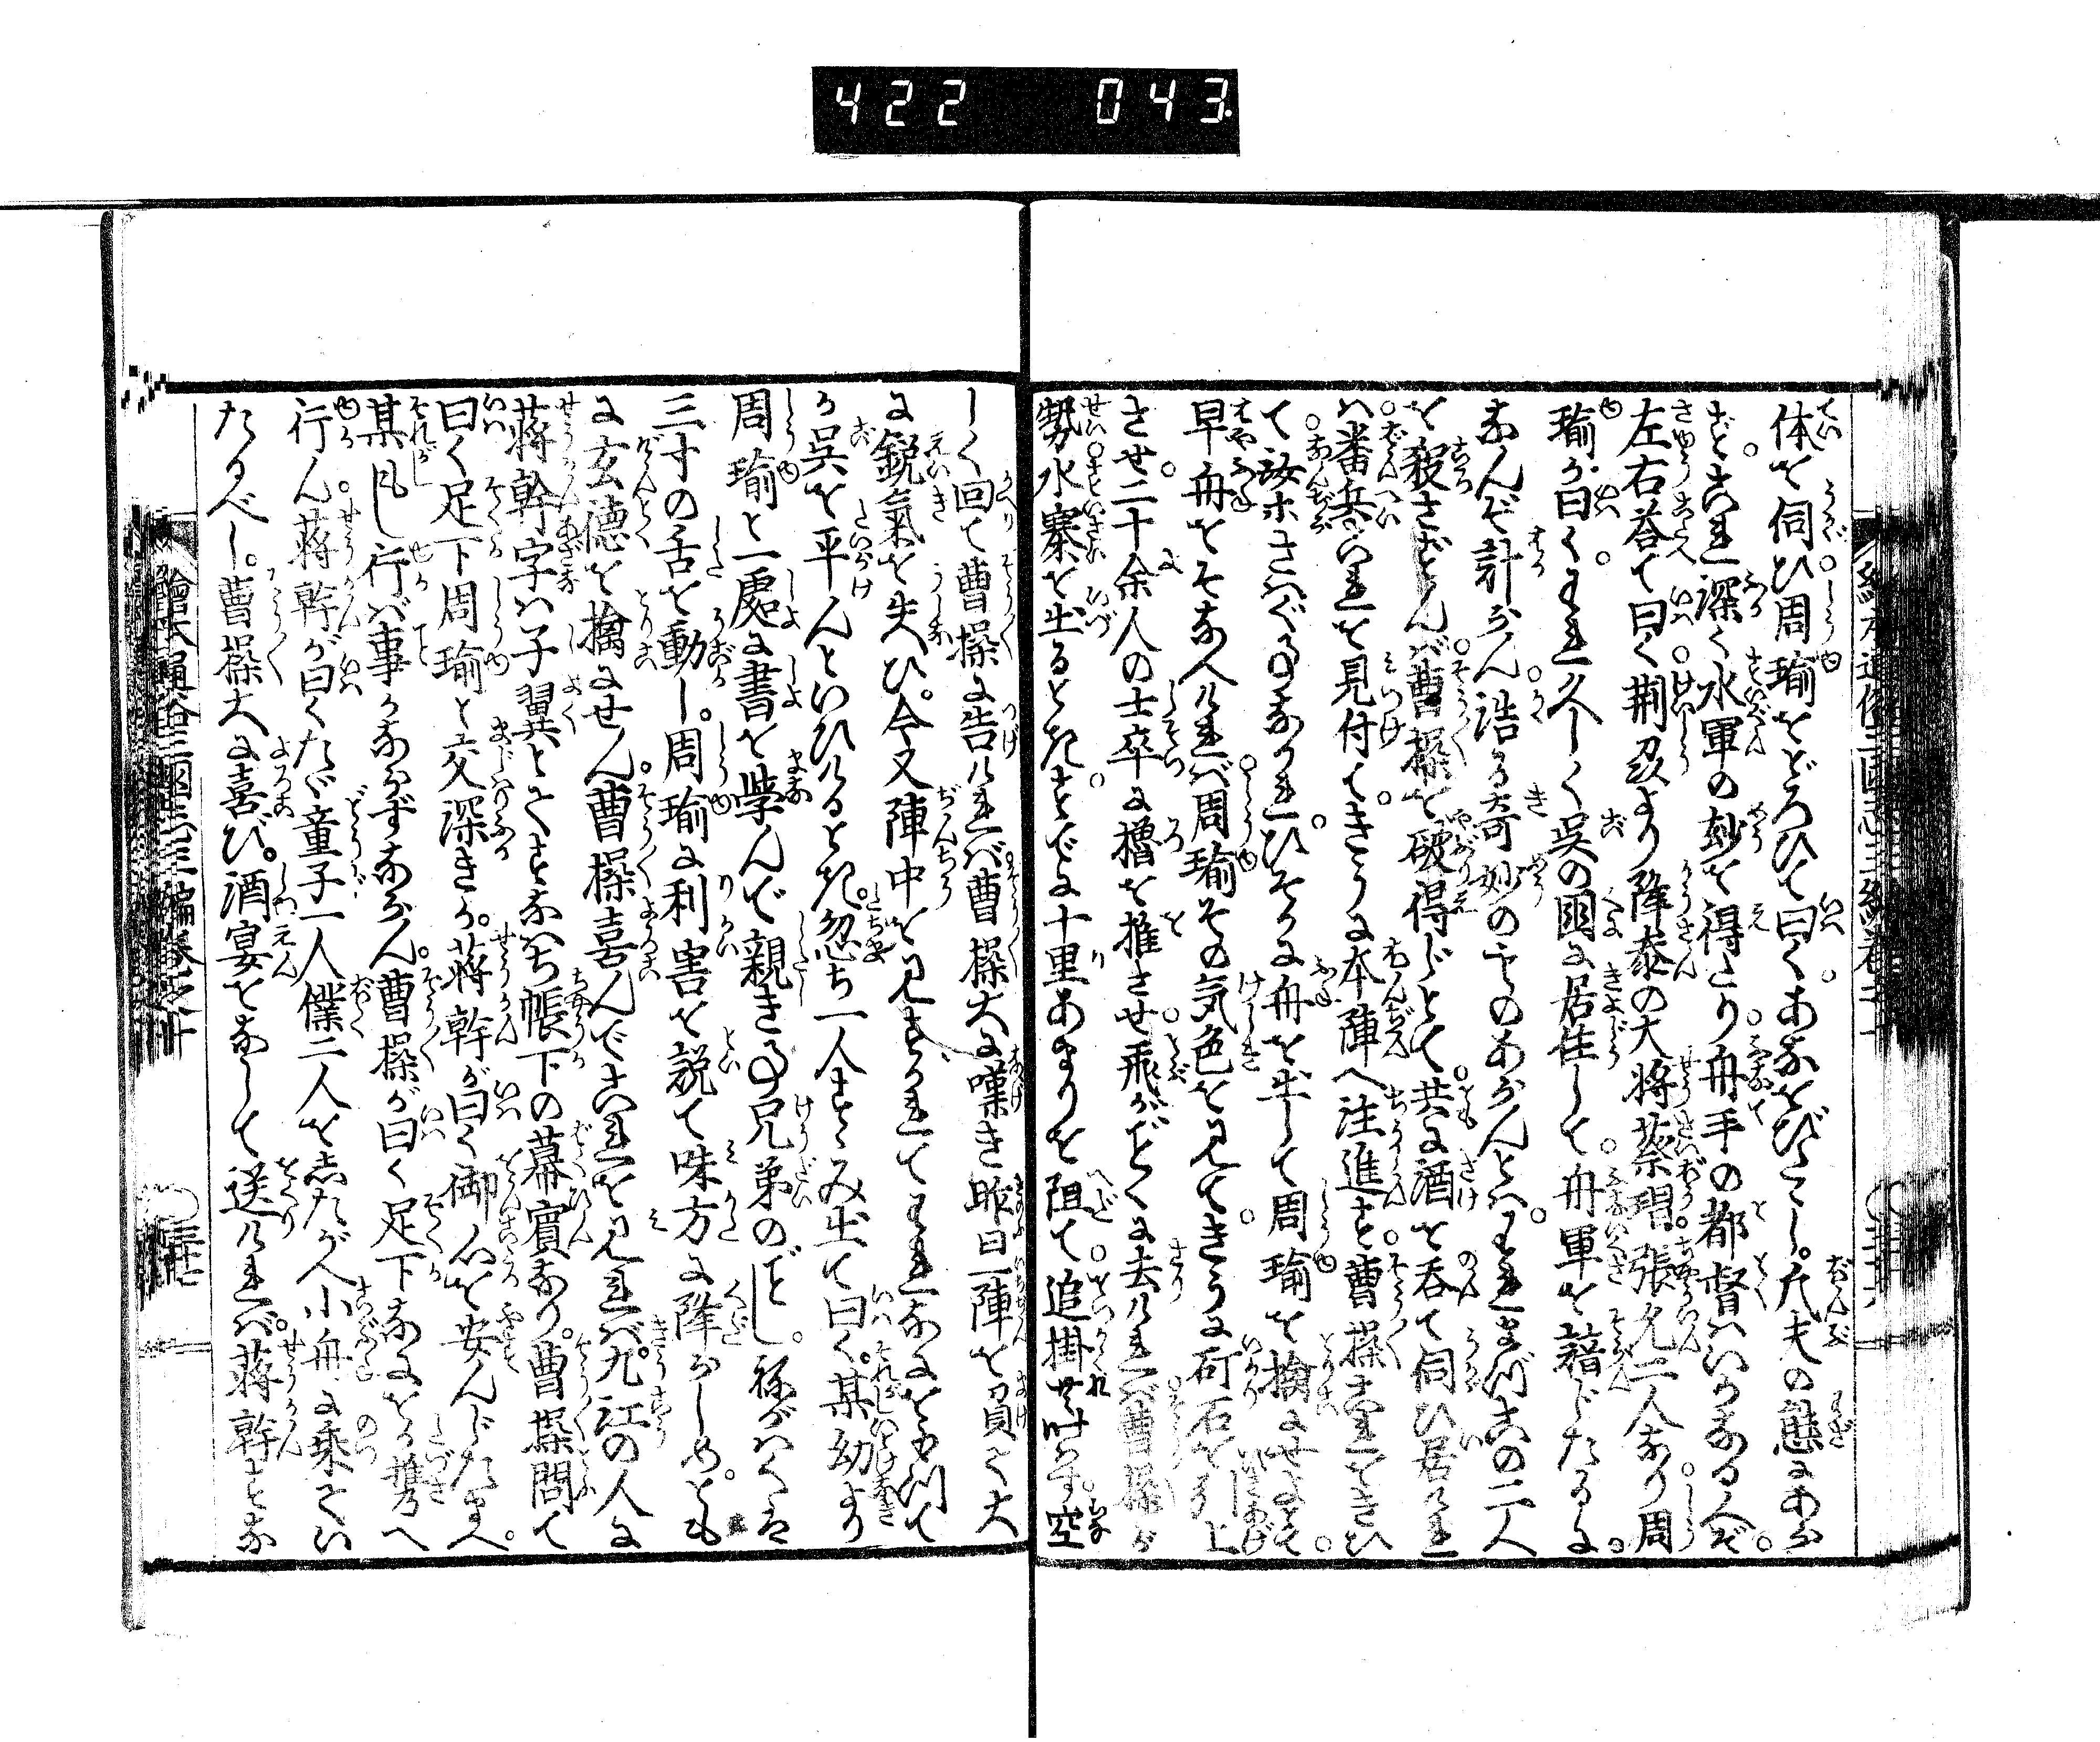 422 043
体を伺ひ周瑜をどろひて曰くあなをびたゝし。凡夫の態にあら
ずこれ深く水軍の妙を得たり舟手の都督はいかなる人ぞ。
左右答て曰く荆州より降参の大将蔡瑁。張允二人あり周
瑜が曰く。われ久しく呉の国に居住して。舟軍を諳じたるに。
なんぞ計らん。諸る奇妙の事のあらんとは。われまづこの二人
を殺さずんば。曹操を破得じとて。共に酒を呑て伺ひ居れ
ば番兵これを見付て。きうに本陣へ注進す。曹操これをきひ
て汝ホさはぐ事なかれ。ひそかに舟を出して周瑜を擒にせよとて。
早舟をそなへければ。周瑜その気色を見て。きうに矴石を引上
させ。二十余人の士卒に櫓を推させ飛がごとくに去ければ。曹操が
勢。水寨を出るとき。すでに十里あまりを阻て。追掛共叶はず。空
しく回て曹操に告ければ。曹操大に嘆き昨日一陣を負て大
に鋭氣を失ひ。今又陣中を見すかされて。われなにをもつて
か呉を平んといひけるとき。忽ち一人すゝみ出て曰く。某幼より
周瑜と一處に書を学んで親き事兄弟のごとし。ねがはくは
三寸の舌を動し。周瑜に利害を説て味方に降らしめ。とも
に玄徳を擒にせん。曹操喜んでこれを見れば。九江の人に
蒋幹字は子翼とてすなはち帳下の幕賓なり。曹操問て
曰く足下周瑜と交深きか。蒋幹が曰く御心を安んじたまへ。
某し行ば事かならずならん。曹操が曰く足下なにをか携へ
行ん。蒋幹が曰くたゞ童子一人僕二人をしたがへ小舟に乗てい
たるべし。曹操大に喜び。酒宴をなして送ければ。蒋幹すな
繪本通俗三國志三編巻之十
三十七